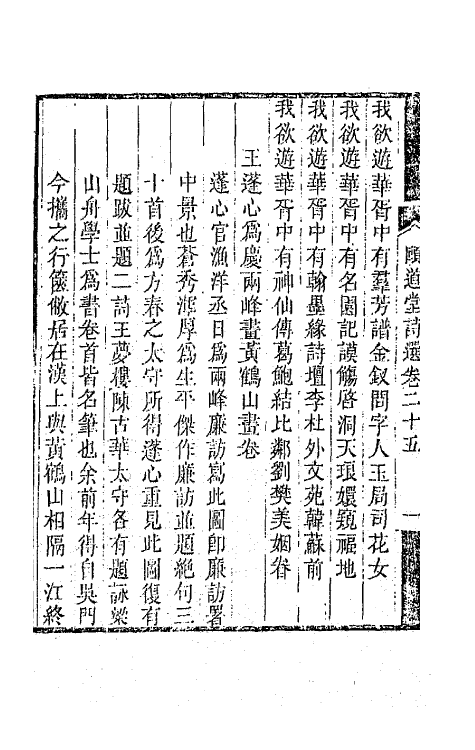 頤道堂詩選卷二十五
一
我欲遊華胥中有羣芳譜金釵問字人玉局司花女
我欲遊華胥中有名園記謨觴啓洞天瑯嬛窺福地
我欲遊華胥中有翰墨緣詩壇李杜外文苑韓蘇前
我欲遊華胥中有神仙傳葛鮑結比鄰劉樊美姻眷
王蓬心爲慶兩峰畫黃鶴山畫卷
蓬心官漁洋丞日爲兩峰廉訪寫此圖卽廉訪署
中景也蒼秀渾厚爲生平傑作廉訪並題絕句三
十首後爲方春之太守所得蓬心重見此圖復有
題跋並題二詩王夢樓陳古華太守各有題詠梁
山舟學士爲書卷首皆名筆也余前年得自吳門
今攜之行篋僦居在漢上與黃鶴山相隔一江終